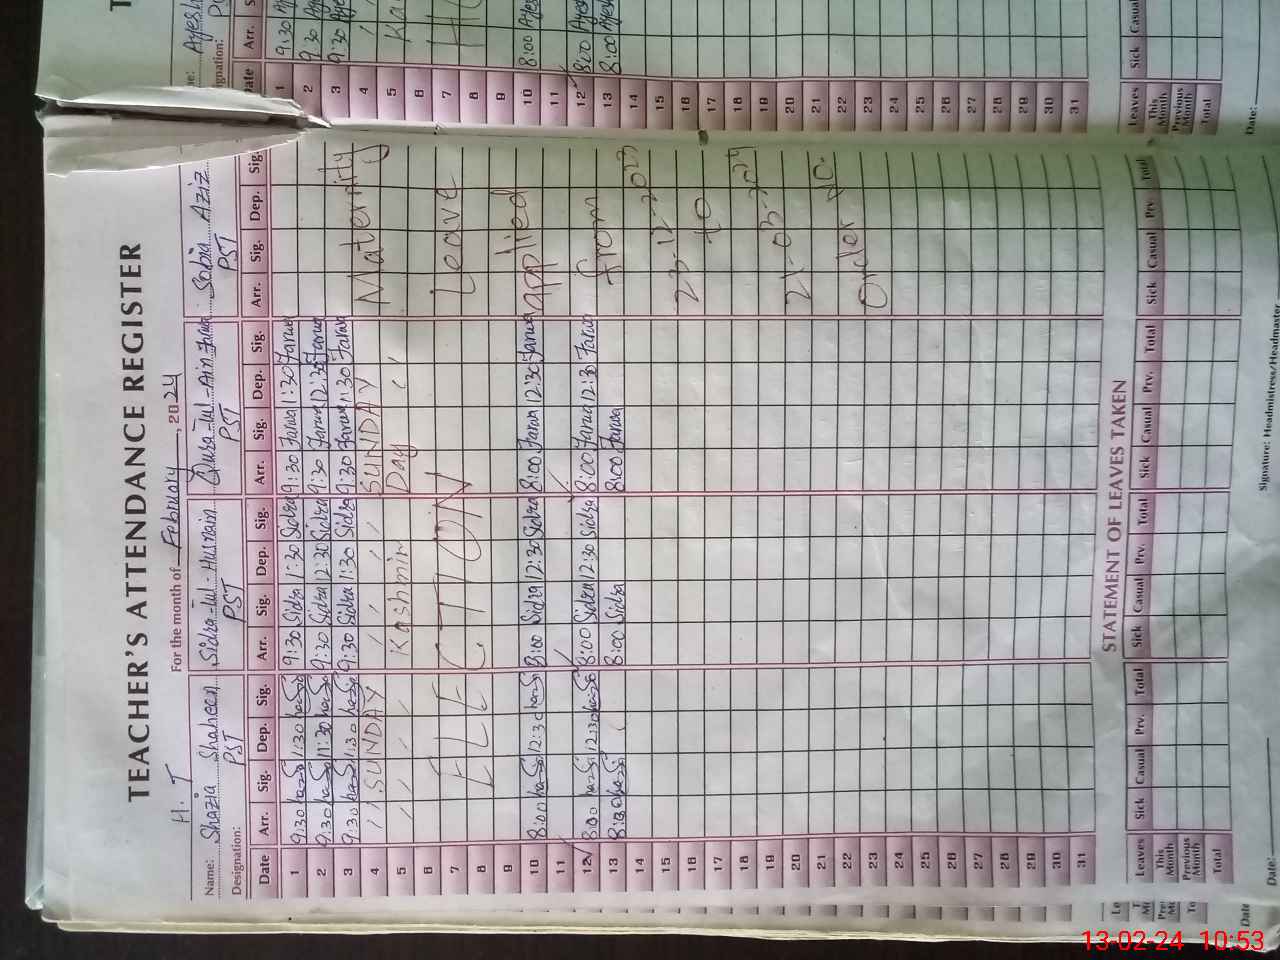 TEACHER'S ATTENDANCE REGISTER
For the month of February, 2024
H. T
Name: Shazia Shaheen Sidra-Tul-Husnain Qura-Tul-Ain Farwa Sabia Aziz
Designation: PST PST PST PST
Date Arr. Sig. Dep. Sig. Arr. Sig. Dep. Sig. Arr. Sig. Dep. Sig. Arr. Sig. Dep. Sig.
1 9:30 1:30 9:30 Sidra 1:30 Sidra 9:30 Farwa 1:30 Farwa
2 9:30 11:30 9:30 Sidra 12:30 Sidra 9:30 Farwa 12:30 Farwa
3 9:30 1:30 9:30 Sidra 1:30 Sidra 9:30 Farwa 1:30 Farwa
4 SUNDAY SUNDAY Maternity
5 Kashmir Day
6
7 ELECTION Leave
8
9
10 8:00 12:30 8:00 Sidra 12:30 Sidra 8:00 Farwa 12:30 Farwa applied
11
12 8:00 12:30 8:00 Sidra 12:30 Sidra 8:00 Farwa 12:30 Farwa
13 8:00 8:00 Sidra 8:00 Farwa from
14
15 23-12-2023
16
17 to
18
19
20 21-03-2024
21
22
23 Order No.
24
25
26
27
28
29
30
31
STATEMENT OF LEAVES TAKEN
Leaves Sick Casual Prv. Total Sick Casual Prv. Total Sick Casual Prv. Total Sick Casual Prv. Total
This Month
Previous Month
Total
Date: Signature: Headmistress/Headmaster
Ayesh
Date Arr.
1 9:30
2 9:30
3 9:30
4
5
6
7
8
9
10 8:00
11
12 8:00
13 8:00
14
15
16
17
18
19
20
21
22
23
24
25
26
27
28
29
30
31
Leaves Sick Casual
This Month
Previous Month
Total
Date:
13-02-24 10:53